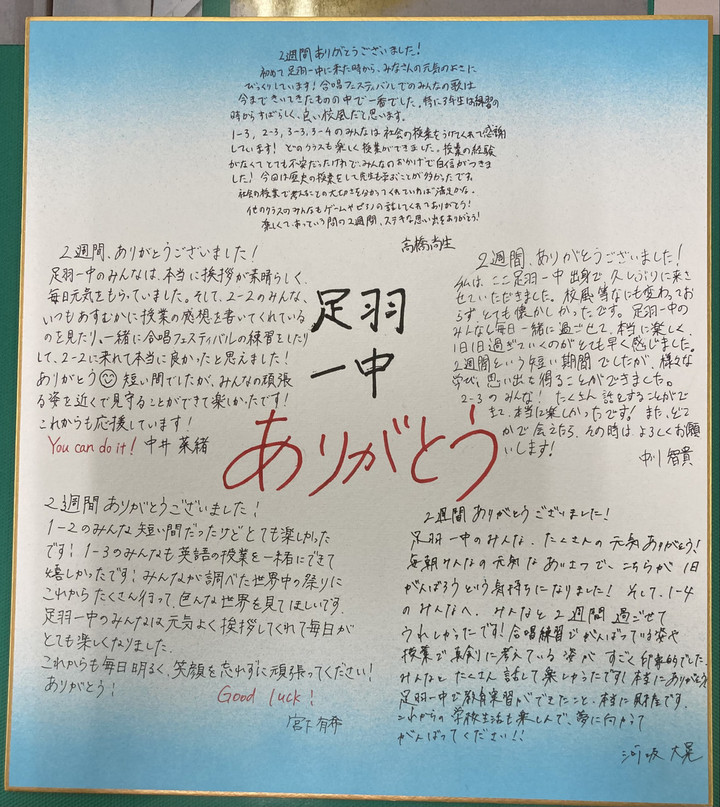 2週間ありがとうございました!
初めて足羽一中に来た時から、みなさんの元気のよさに
びっくりしています!合唱フェスティバルでのみんなの歌は
今まできいてきたものの中で一番でした。特に3年生は練習の
時からすばらしく、良い校風だと思います。
1-3, 2-3, 3-3, 3-4のみんなは社会の授業をうけてくれて感謝
しています!どのクラスも楽しく授業ができました。授業の経験
がなくてとても不安だったけれど、みんなのおかげで自信がつきま
した!今回は歴史の授業をして先生も学ぶことが多かったです。
社会の授業で考えることの大切さを分かってくれていれば満足かな。
他のクラスのみんなもゲームやピアノの話してくれてありがとう!
楽しくてあっという間の2週間、ステキな思い出をありがとう!
高橋尚生
2週間、ありがとうございました!
足羽一中のみんなは、本当に挨拶が素晴らしく、
毎日元気をもらっていました。そして、2-2のみんな、
いつもあすむかに授業の感想を書いてくれている
のを見たり、一緒に合唱フェスティバルの練習をしたり
して、2-2に来れて本当に良かったと思えました!
ありがとう 短い間でしたが、みんなの頑張
る姿を近くで見守ることができて楽しかったです!
これからも応援しています!
You can do it! 中井 菜緒
2週間、ありがとうございました!
私は、ここ足羽一中出身で、久しぶりに来さ
せていただきました。校風等なにも変わってお
らず、とても懐かしかったです。足羽一中の
みんなと毎日一緒に過ごせて、本当に楽しく、
1日1日過ぎていくのがとても早く感じました。
2週間という短い期間でしたが、様々な
学び、思い出を得ることができました。
2-3のみんな!たくさん話をすることがで
きて、本当に楽しかったです!また、どこ
かで会えたら、その時は、よろしくお願
いします!
中川 智貴
足羽
一中
ありがとう
2週間ありがとうございました!
1-2のみんな短い間だったけどとても楽しかった
です!1-3のみんなも英語の授業を一緒にできて
嬉しかったです!みんなが調べた世界中の祭りに
これからたくさん行って、色んな世界を見てほしいです。
足羽一中のみんなは元気よく挨拶してくれて毎日が
とても楽しくなりました。
これからも毎日明るく、笑顔を忘れずに頑張ってください!
ありがとう! Good luck!
宮下 有希
2週間ありがとうございました!
足羽一中のみんな、たくさんの元気ありがとう!
毎朝みんなの元気なあいさつで、こちらが1日
がんばろうという気持ちになりました!そして、1-4
のみんなへ、みんなと2週間過ごせて
うれしかったです!合唱練習でがんばっている姿や
授業で真剣に考えている姿がすごく印象的でした。
みんなとたくさん話して楽しかったです!本当にありがとう。
足羽一中で教育実習ができたこと、本当に財産です。
これからの学校生活も楽しんで、夢に向かって
がんばってください!!
河坂 大晃